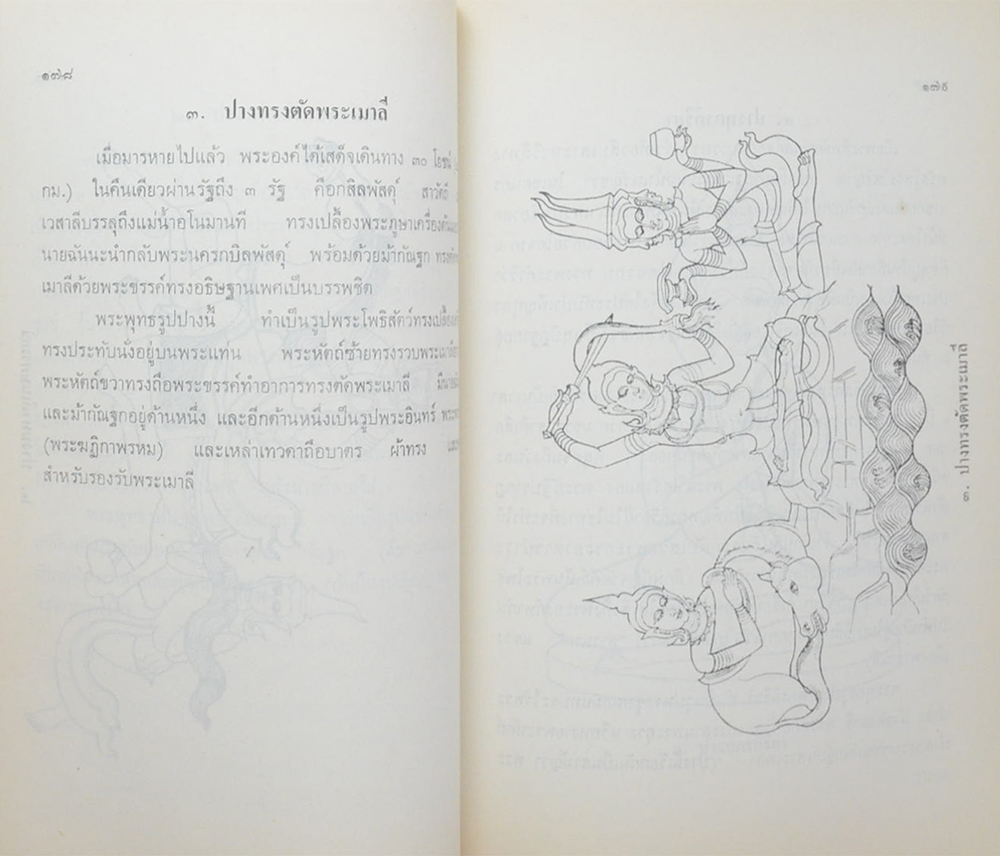 ๑๗๘
๓. ปางทรงตัดพระเมาลี
เมื่อมารหายไปแล้ว พระองค์ได้เสด็จเดินทาง ๓๐ โยชน์
กม.) ในคืนเดียวผ่านรัฐถึง ๓ รัฐ คือกสิลพัสดุ์ สาวัตถี
เวสาลีบรรลุถึงแม่น้ำอโนมานที ทรงเปลื้องพระภูษาเครื่อง
นายฉันนะนำกลับพระนครกบิลพัสดุ์ พร้อมด้วยม้ากัณฐก
เมาลีด้วยพระขรรค์ทรงอธิษฐานเพศเป็นบรรพชิต
พระพุทธรูปปางนี้ ทำเป็นรูปพระโพธิสัตว์
ทรงประทับนั่งอยู่บนพระแท่น พระหัตถ์ซ้ายทรงรวบ
พระหัตถ์ขวาทรงถือพระขรรค์ทำอาการทรงตัดพระเมาลี
และม้ากัณฐกอยู่ด้านหนึ่ง และอีกด้านหนึ่งเป็นรูปพระอินทร์
(พระฆฏิกาพรหม) และเหล่าเทวดาถือบาตร ผ้าทรง
สำหรับรองรับพระเมาลี
๑๗๙
๓. ปางทรงตัดพระเมาลี